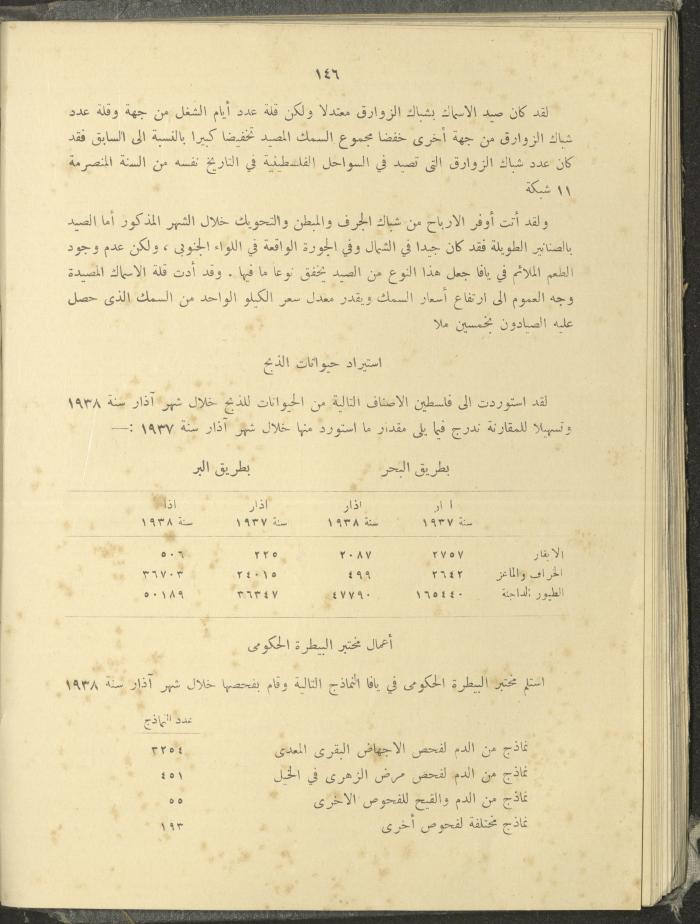 ١٤٦
لقد كان صيد الاسماك بشباك الزوارق معتدلا ولكن قلة عدد أيام الشغل من جهة وقلة عدد
شباك الزوارق من جهة أخرى خفضا مجموع السمك المصيد تخفيضا كبيرا بالنسبة الى السابق فقد
كان عدد شباك الزوارق التى تصيد في السواحل الفلسطينية في التاريخ نفسه من السنة المنصرمة
١١ شبكة
ولقد أتت أوفر الارباح من شباك الجرف والمبطن والتحويك خلال الشهر المذكور أما الصيد
بالصنانير الطويلة فقد كان جيدا في الشمال وفي الجورة الواقعة في اللواء الجنوبى ، ولكن عدم وجود
الطعم الملائم في يافا جعل هذا النوع من الصيد يخفق نوعا ما فيها . وقد أدت قلة الاسماك المصيدة
وجه العموم الى ارتفاع أسعار السمك ويقدر معدل سعر الكيلو الواحد من السمك الذى حصل
عليه الصيادون بخمسين ملا
استيراد حيوانات الذبح
لقد استوردت الى فلسطين الاصناف التالية من الحيوانات للذبح خلال شهر آذار سنة ١٩٣٨
وتسهيلا للمقارنة ندرج فيما يلى مقدار ما استورد منها خلال شهر آذار سنة ١٩٣٧ :—
بطريق البحر بطريق البر
ا ار اذار اذار اذا
سنة ١٩٣٧ سنة ١٩٣٨ سنة ١٩٣٧ سنة ١٩٣٨
الابقار ٢٧٥٧ ٢٠٨٧ ٢٢٥ ٥٠٦
الخراف والماعز ٢٦٤٢ ٤٩٩ ٢٤٠١٥ ٣٦٧٠٣
الطيور الداجنة ١٦٥٤٤٠ ٤٧٧٩٠ ٣٦٣٤٧ ٥٠١٨٩
أعمال مختبر البيطرة الحكومى
استلم مختبر البيطرة الحكومى في يافا النماذج التالية وقام بفحصها خلال شهر آذار سنة ١٩٣٨
عدد النماذج
نماذج من الدم لفحص الاجهاض البقرى المعدى ٣٢٥٤
نماذج من الدم لفحص مرض الزهرى في الخيل ٤٥١
نماذج من الدم والقيح للفحوص الاخرى ٥٥
نماذج مختلفة لفحوص أخرى ١٩٣